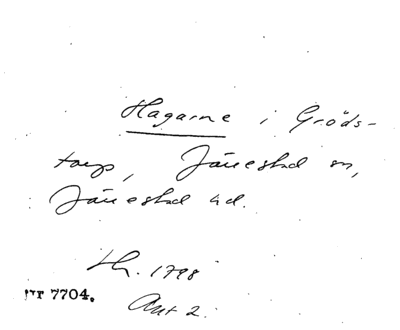 Hagarne i Gröds-
torp, Järrestad sn,
Järrestad hd.
Lh. 1798
7704.
Akt 2.